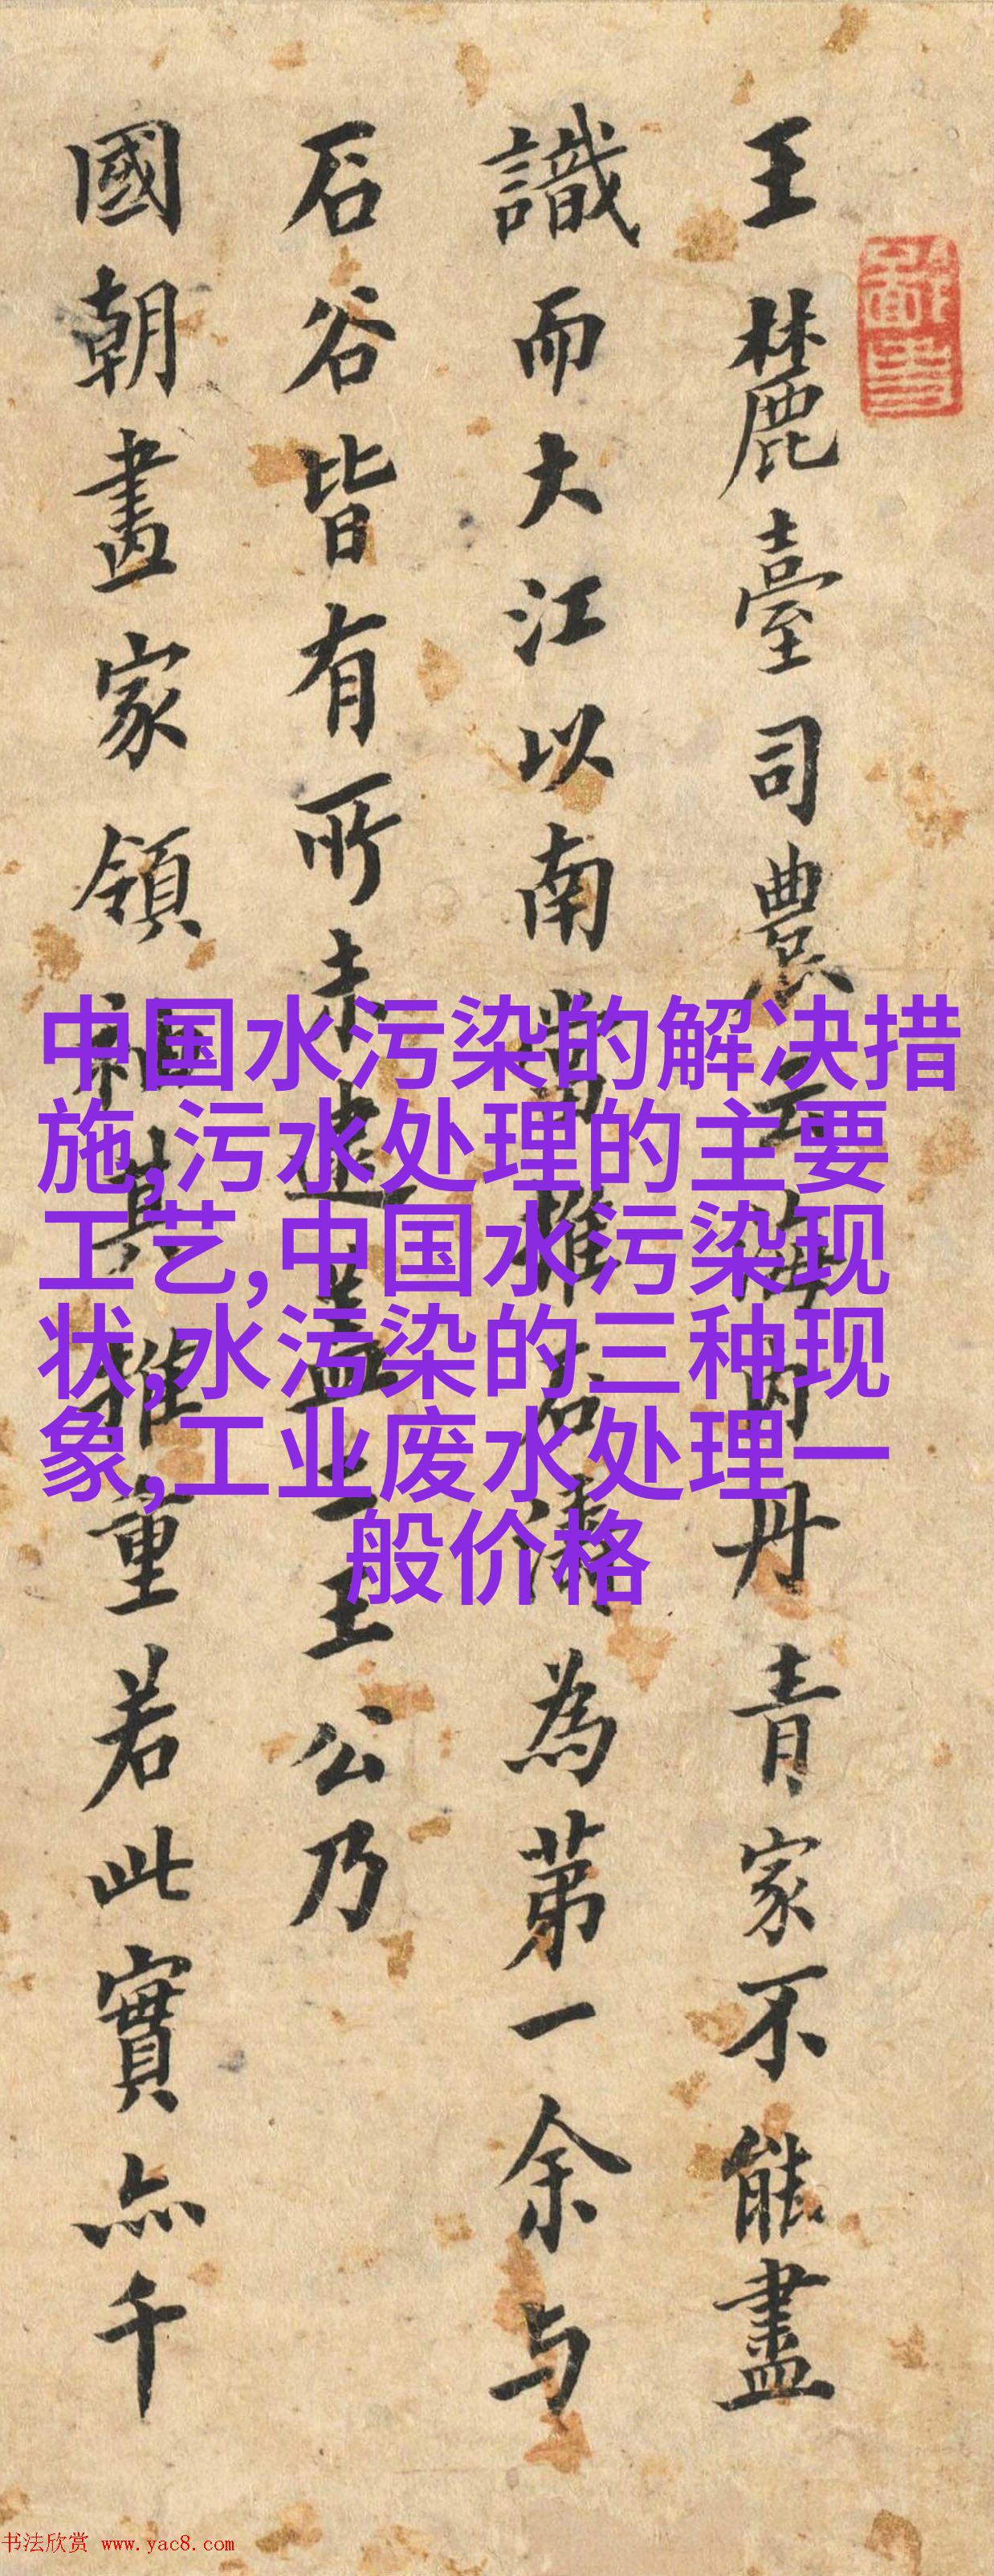 王麓臺司農云海內丹青家不能盡
識而大江以南當推石濤為第一余與
石谷皆有所未逮蓋二王公乃
國朝畫家領袖其推重若此實亦千
中国水污染的解决措
施,污水处理的主要
工艺,中国水污染现
状,水污染的三种现
象,工业废水处理一
般价格
书法欣赏 www.yac8.com